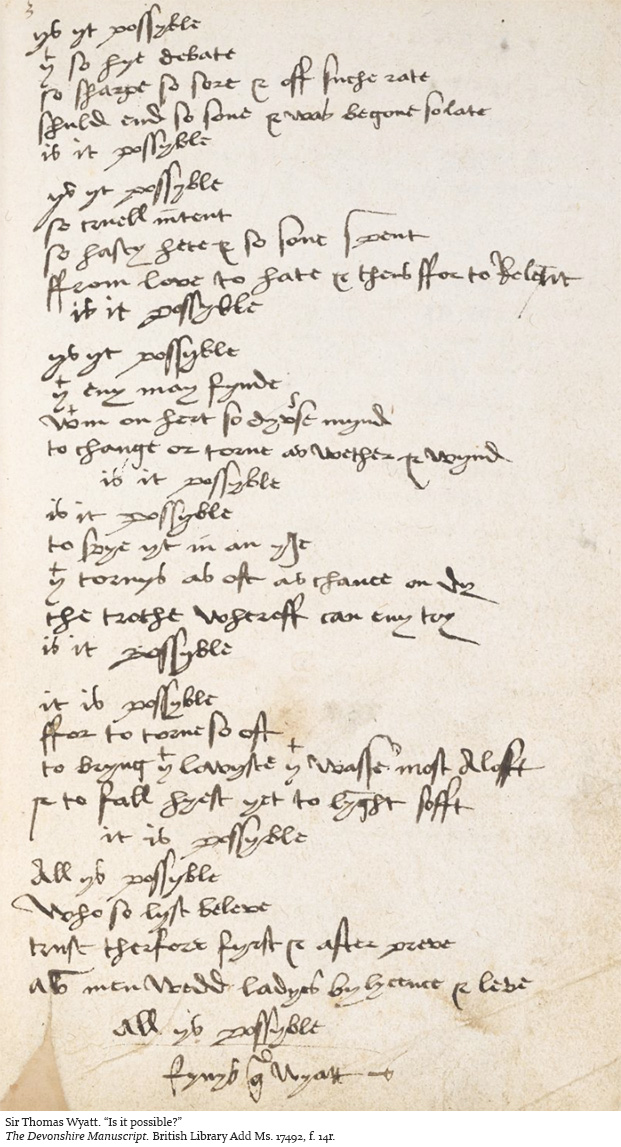 3
ys yt possyble
yt so hye debate
so sharpe so sore & off suche rate
shuld end so sone & was begone so late
is it possyble
ys yt possyble
so cruell intent
so hasty hete & so sone spent
ffrom love to hate & thens ffor to Relent
is it possyble
ys yt possyble
yt eny may fynde
wtin on hert so dyverse mynd
to change or torne as wether & wynd
is it possyble
is it possyble
to spye yt in an yIe
yt tornys as oft as chance on dy
the trothe wheroff can eny try
is it possyble
it is possyble
ffor to torne so oft
to bryng yt lowyste yt wasse most Aloft
& to fall hyest yet to lyght sofft
it is possyble
All ys possyble
Who so lyst beleve
trust therfore fyrst & after preve
as men wedd ladyes by lycence & leve
All ys possyble
fynys qd Wyatt
Sir Thomas Wyatt. “Is it possible?”
The Devonshire Manuscript. British Library Add Ms. 17492, f. 14r.